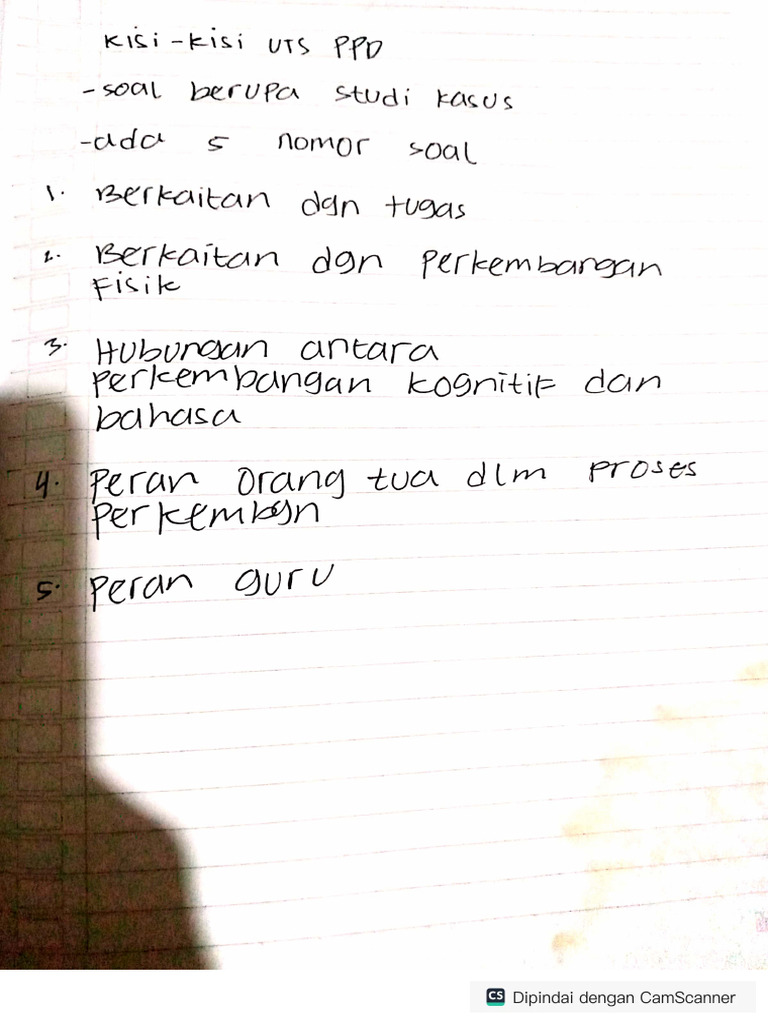 Kisi-Kisi UTS PPD
-soal berupa studi kasus
-ada 5 nomor soal
1. Berkaitan dgn tugas
2. Berkaitan dgn perkembangan
Fisik
3. Hubungan antara
perkembangan kognitif dan
bahasa
4. Peran orang tua dlm proses
perkembgn
5. Peran guru
CS Dipindai dengan CamScanner